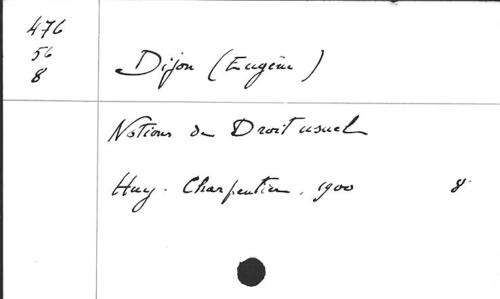 476
56
8
Dijon (Eugène)
Notions de Droit usuel
Huy - Charpentier. 1900 8°